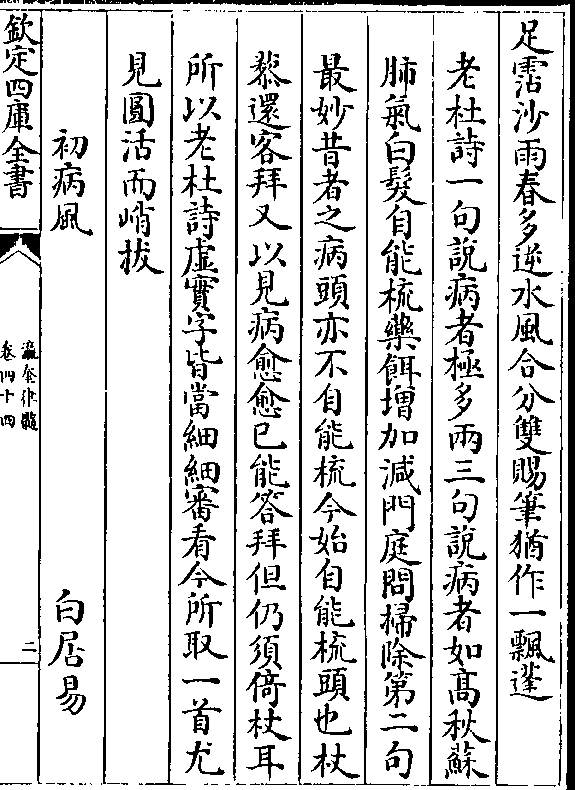 足霑沙雨春多逆水風合分雙賜筆猶作一飄蓬
老杜詩一句說病者極多兩三句說病者如髙秋蘇
肺氣白髮自能梳藥餌増加減門庭問掃除第二句
最妙昔者之病頭亦不自能梳今始自能梳頭也杖
藜還客拜又以見病愈愈已能答拜但仍須倚杖耳
所以老杜詩虚實字皆當細細審看今所取一首尤
見圓活而峭拔
初病風 白居易
欽定四庫全書
瀛奎律髓
卷四十四
二